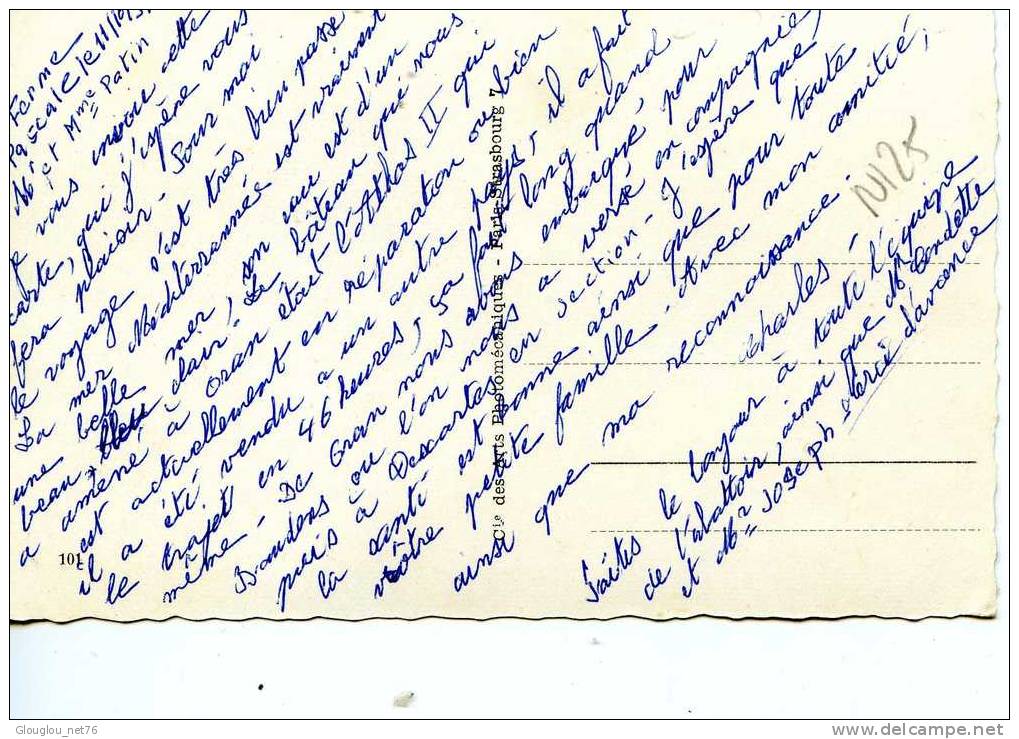 Ferme
Pascale le 11/10/5
Mr et Mme Patin
Je vous envoie cette
carte, qui j'espère vous
fera plaisir - Pour moi
le voyage s'est très bien passé
La mer Méditerrannée est vraiment
une belle mer, son eau est d'un
beau bleu clair. Le bâteau qui nous
a amené à Oran était l'Athos II qui
est actuellement en réparation ou bien
il a été vendu a un autre pays, il a fait
le trajet en 46 heures, ça fait long quand
même - De Oran nous avons embarqué, pour
puis à ou l'on m'a versé en compagnie,
la à Descartes en section - J'espère que
santé est bonne ainsi que pour toute
vôtre petite famille - Avec mon amitié,
ainsi que ma reconnaissance.
Charles -
Faites le bonjour à toute l'équipe
de l'abattoir, ainsi que Mr Condette
et Mr Joseph Merci d'avance
N125
101
Cie des Arts Photomécaniques - Paris-Strasbourg 7
Glouglou_net76
delcampe.net